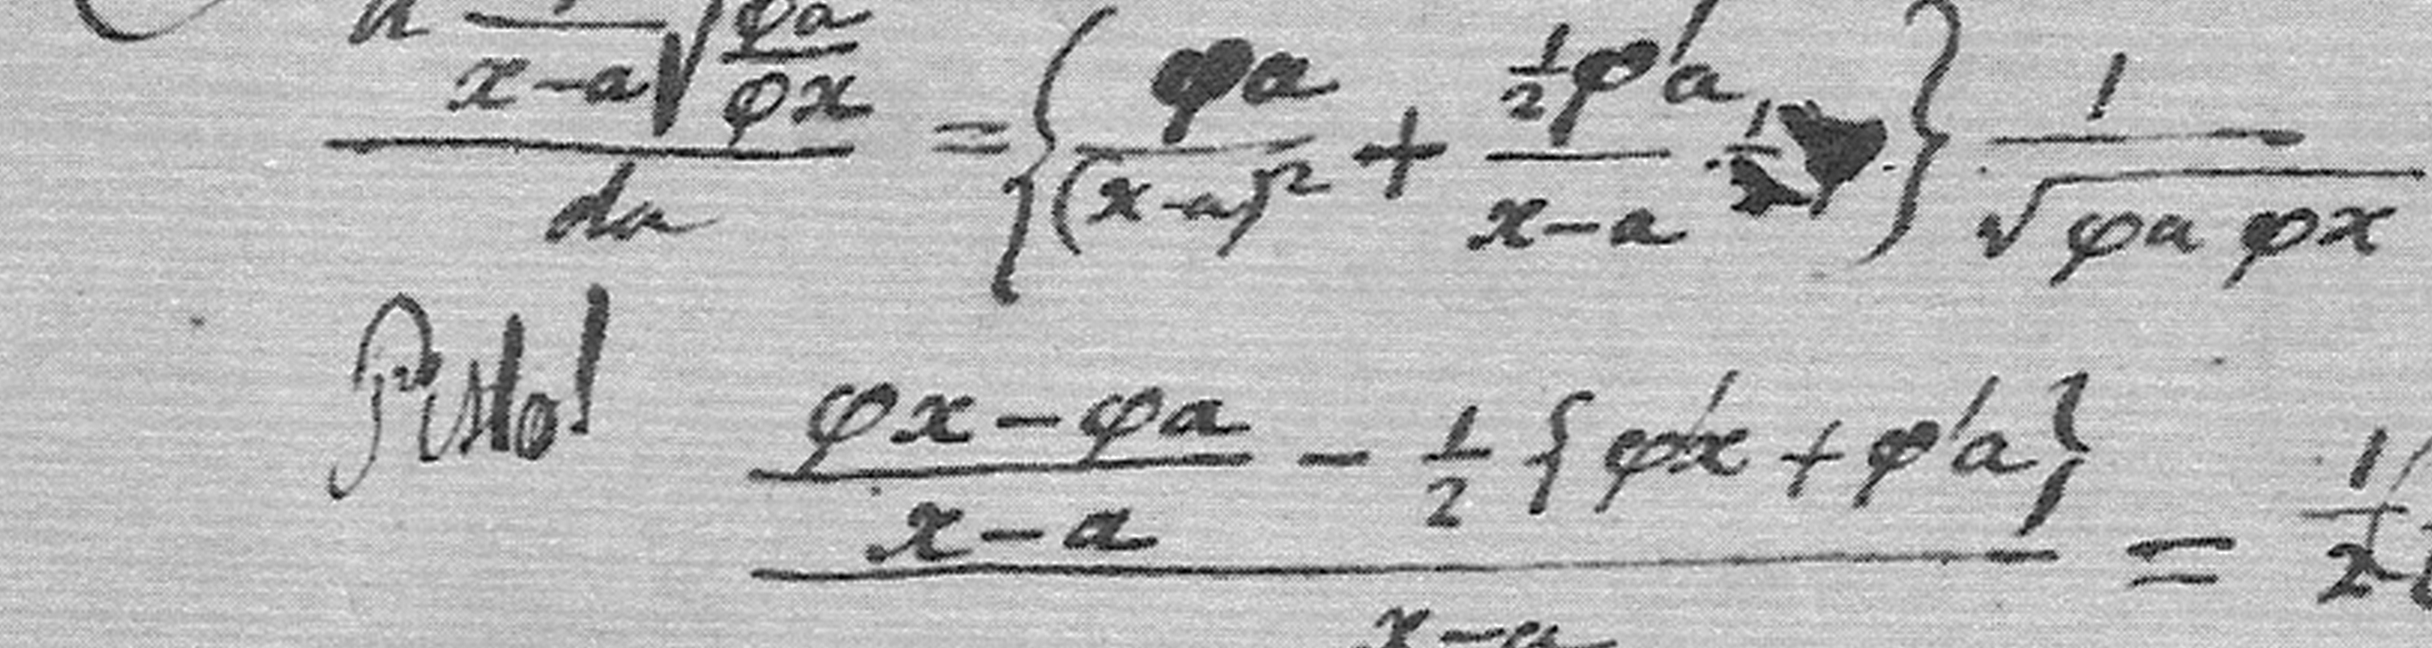 d 1/(x-a) √(φa/φx) / da = { φa/(x-a)² + ½φ'a/(x-a) } 1/√(φa φx)
(φx-φa)/(x-a) - ½{φ'x+φ'a} / (x-a) =